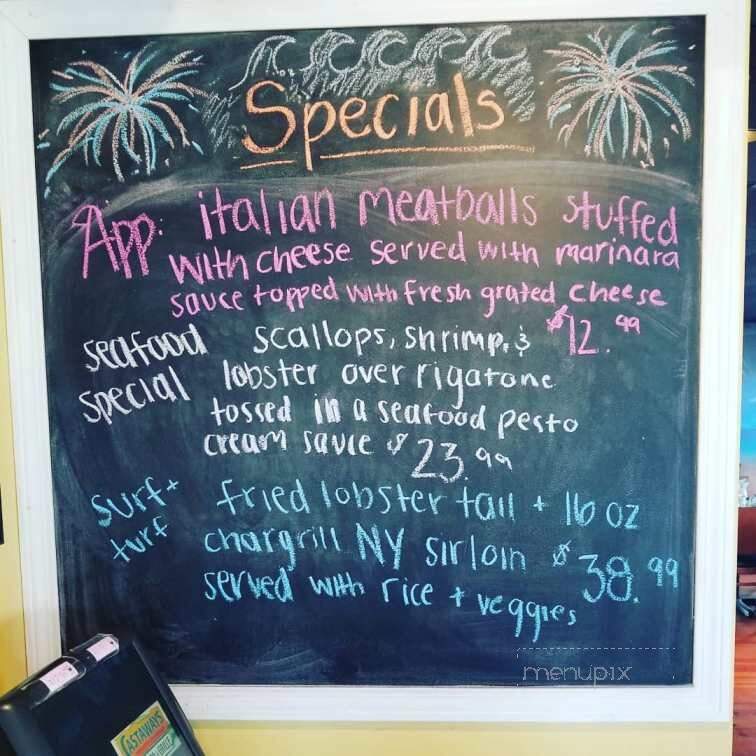 Specials
App: italian meatballs stuffed
with cheese served with marinara
sauce topped with fresh grated cheese
$12.99
seafood special
scallops, shrimp, &
lobster over rigatone
tossed in a seafood pesto
cream sauce $23.99
surf + turf
fried lobster tail + 16 oz
chargrill NY sirloin $38.99
served with rice + veggies
menupix
CASTAWAYS